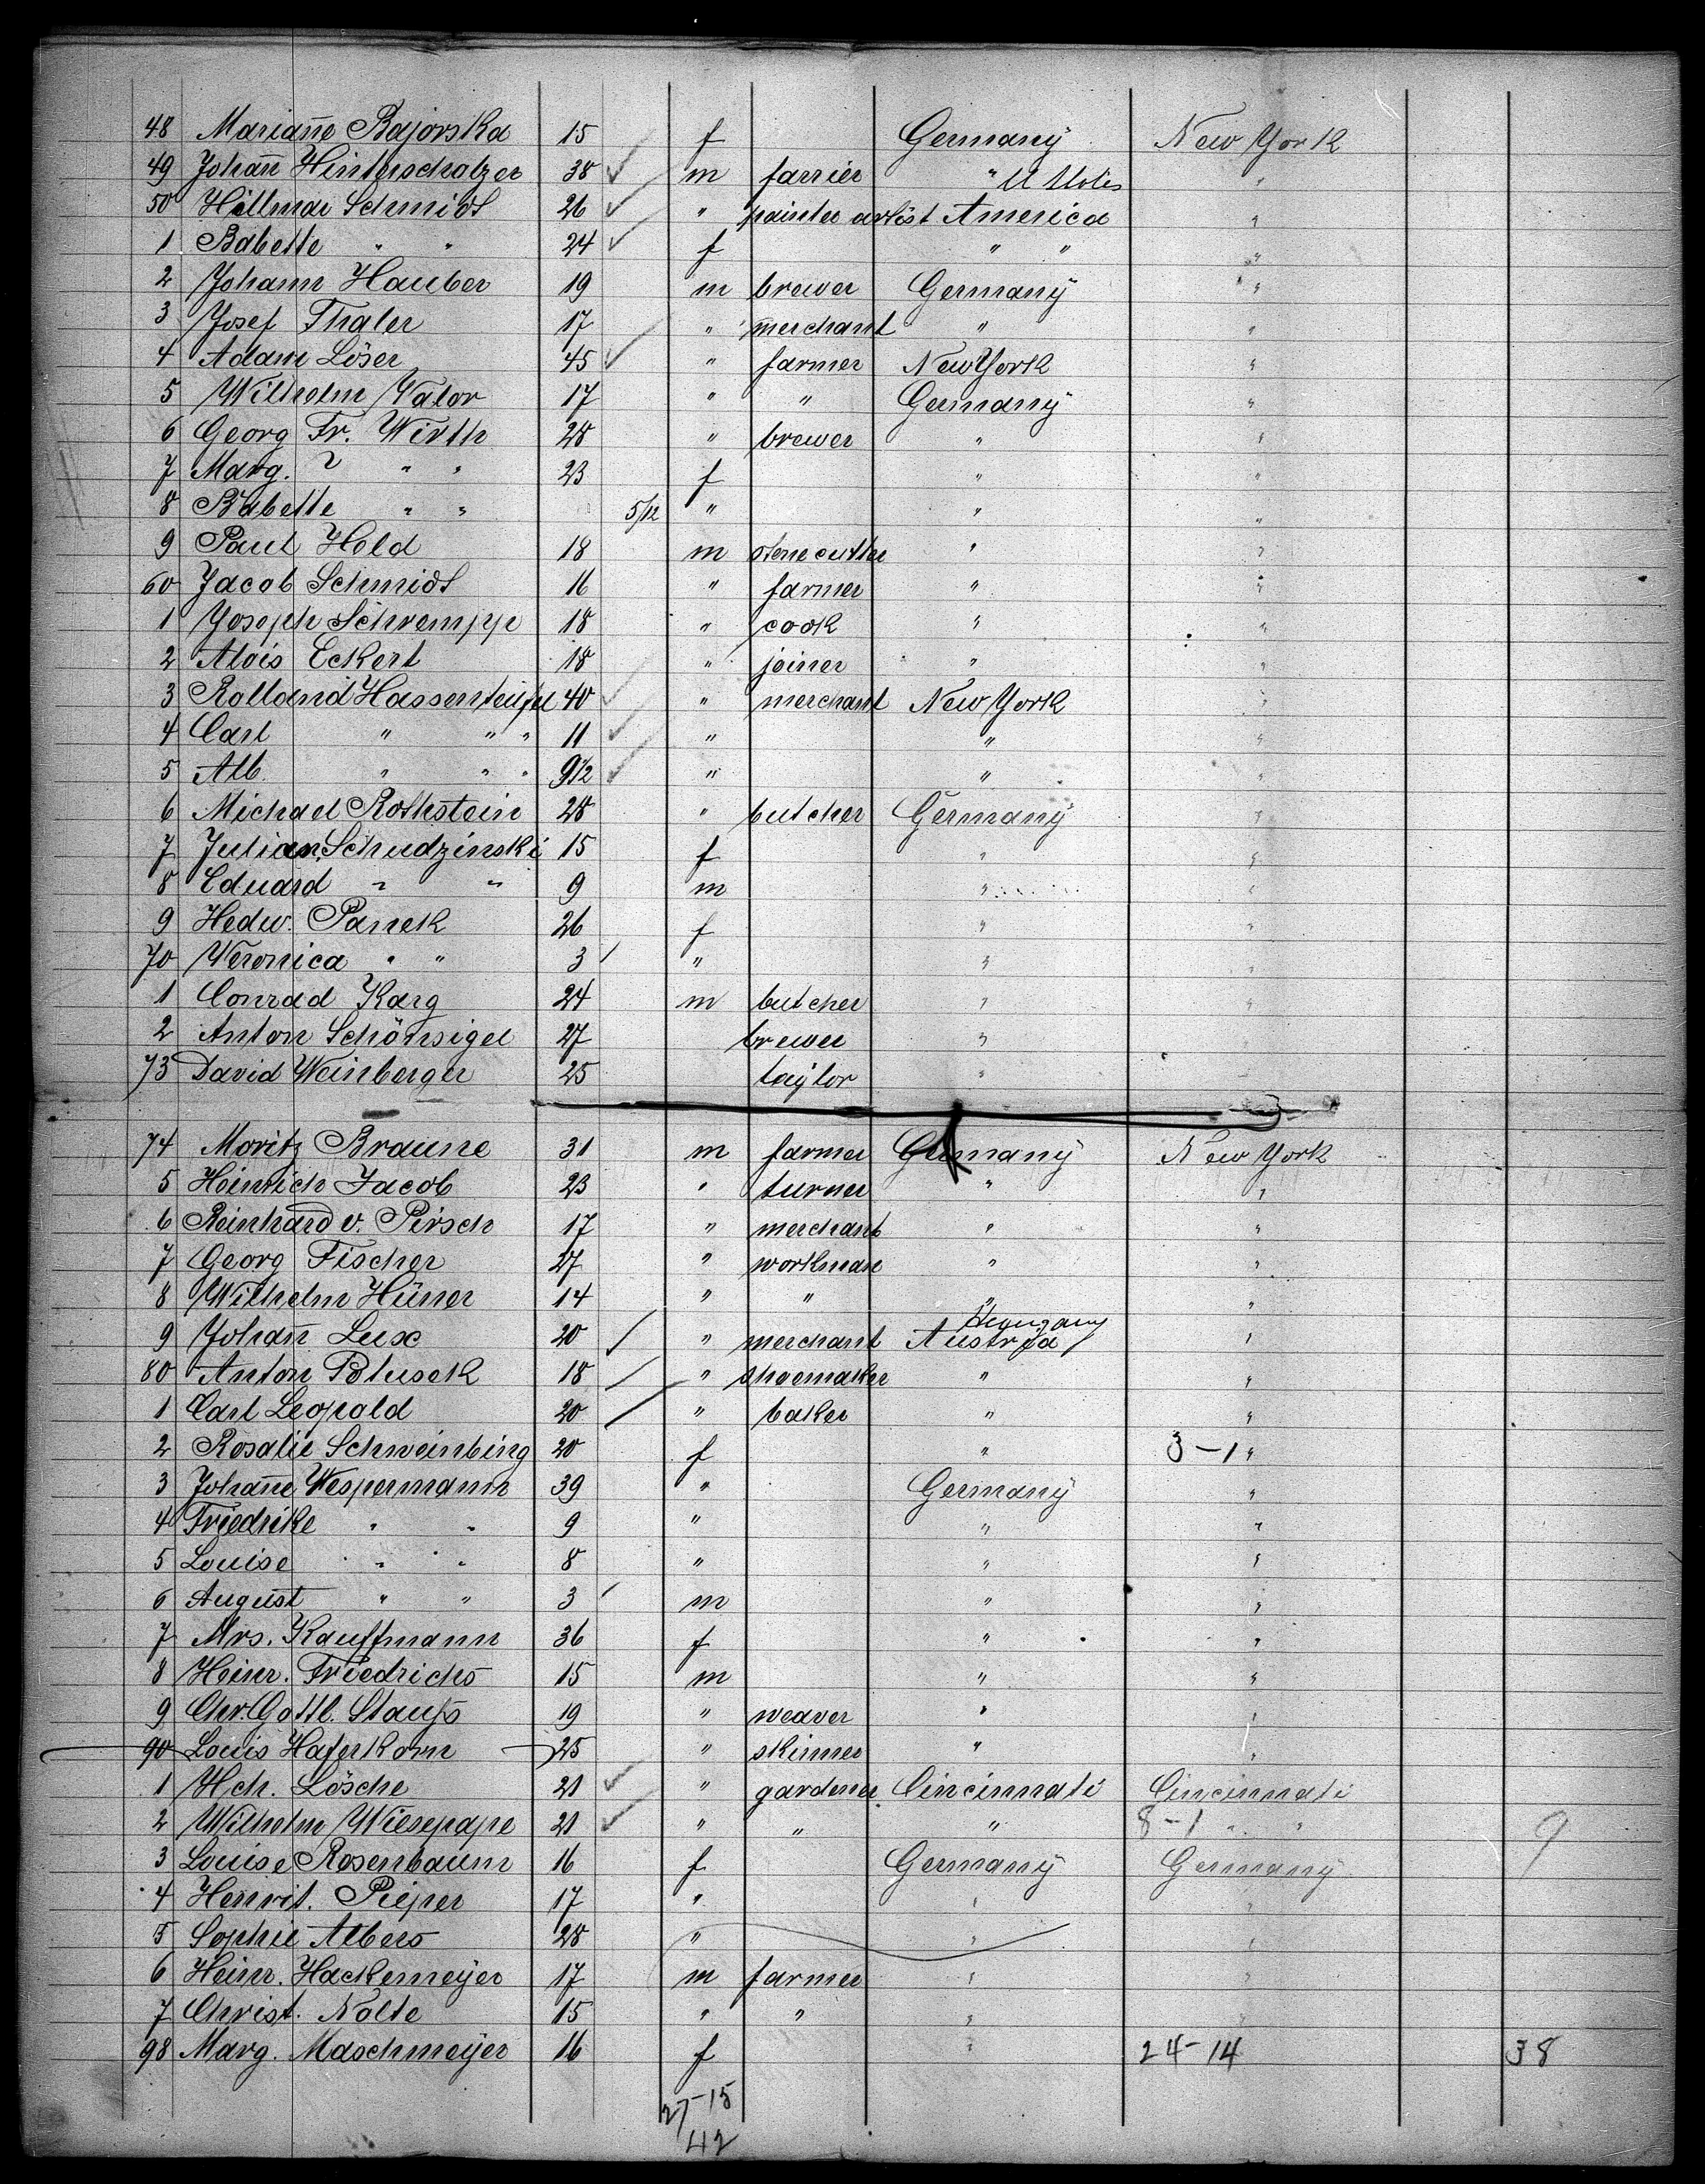 48 Mariañe Bajorska 15 f Germany New York
49 Johañ Hinterscholzer 38 m farrier " "
50 Hillmar Schmidt 26 " painter artist America "
1 Babette " " 24 f " " "
2 Johann Hauber 19 m brewer Germany "
3 Josef Thaler 17 " merchant " "
4 Adam Löser 45 " farmer New York "
5 Wilhelm Vator 17 " " Germany "
6 Georg Fr. Wirth 28 " brewer " "
7 Marg. " " 23 f " "
8 Babette " " 5/12 " " "
9 Paul Held 18 m stonecutter " "
60 Jacob Schmidt 16 " farmer " "
1 Joseph Schrempp 18 " cook " "
2 Alois Eckert 18 " joiner " "
3 Rolland Hassenteufel 40 " merchant New York "
4 Carl " " " 11 " " "
5 Alb. " " " 9 1/2 " " "
6 Michael Rothstein 28 " butcher Germany "
7 Julian. Schudzinski 15 f " "
8 Eduard " " 9 m " "
9 Hedw. Panek 26 f " "
70 Veronica " " 3 " " "
1 Conrad Karg 24 m butcher " "
2 Anton Schönsigel 27 brewer "
73 David Weinberger 25 taylor "
74 Moritz Braune 31 m farmer Germany New York
5 Heinrich Jacob 23 " turner " "
6 Reinhard v. Pirsch 17 " merchant " "
7 Georg Fischer 27 " workman " "
8 Wilhelm Hüner 14 " " " "
Hungary
9 Johañ Lux 20 " merchant Austria "
80 Anton Poluseck 18 " shoemaker " "
1 Carl Leopold 20 " baker " "
2 Rosalie Schweinbing 20 f " 3-1 "
3 Johañe Wespermann 39 " Germany "
4 Friedrike " " 9 " " "
5 Louise " " 8 " " "
6 August " " 3 m " "
7 Mrs. Kauffmann 36 f " "
8 Heinr. Friedrichs 15 m " "
9 Chr. Gottl. Staufs 19 " weaver " "
90 Louis Haferkorn 25 " skinner " "
1 Hch. Lösche 21 " gardener Cincinnati Cincinnati
2 Wilhelm Wiesepape 21 " " " 8-1 " " 9
3 Louise Rosenbaum 16 f Germany Germany
4 Henrit. Pieper 17 " " "
5 Sophie Albers 28 " " "
6 Heinr. Hackemeijer 17 m farmer " "
7 Christ. Nolte 15 " " " "
98 Marg. Maschmeijer 16 f " 24-14 38
27-15
42